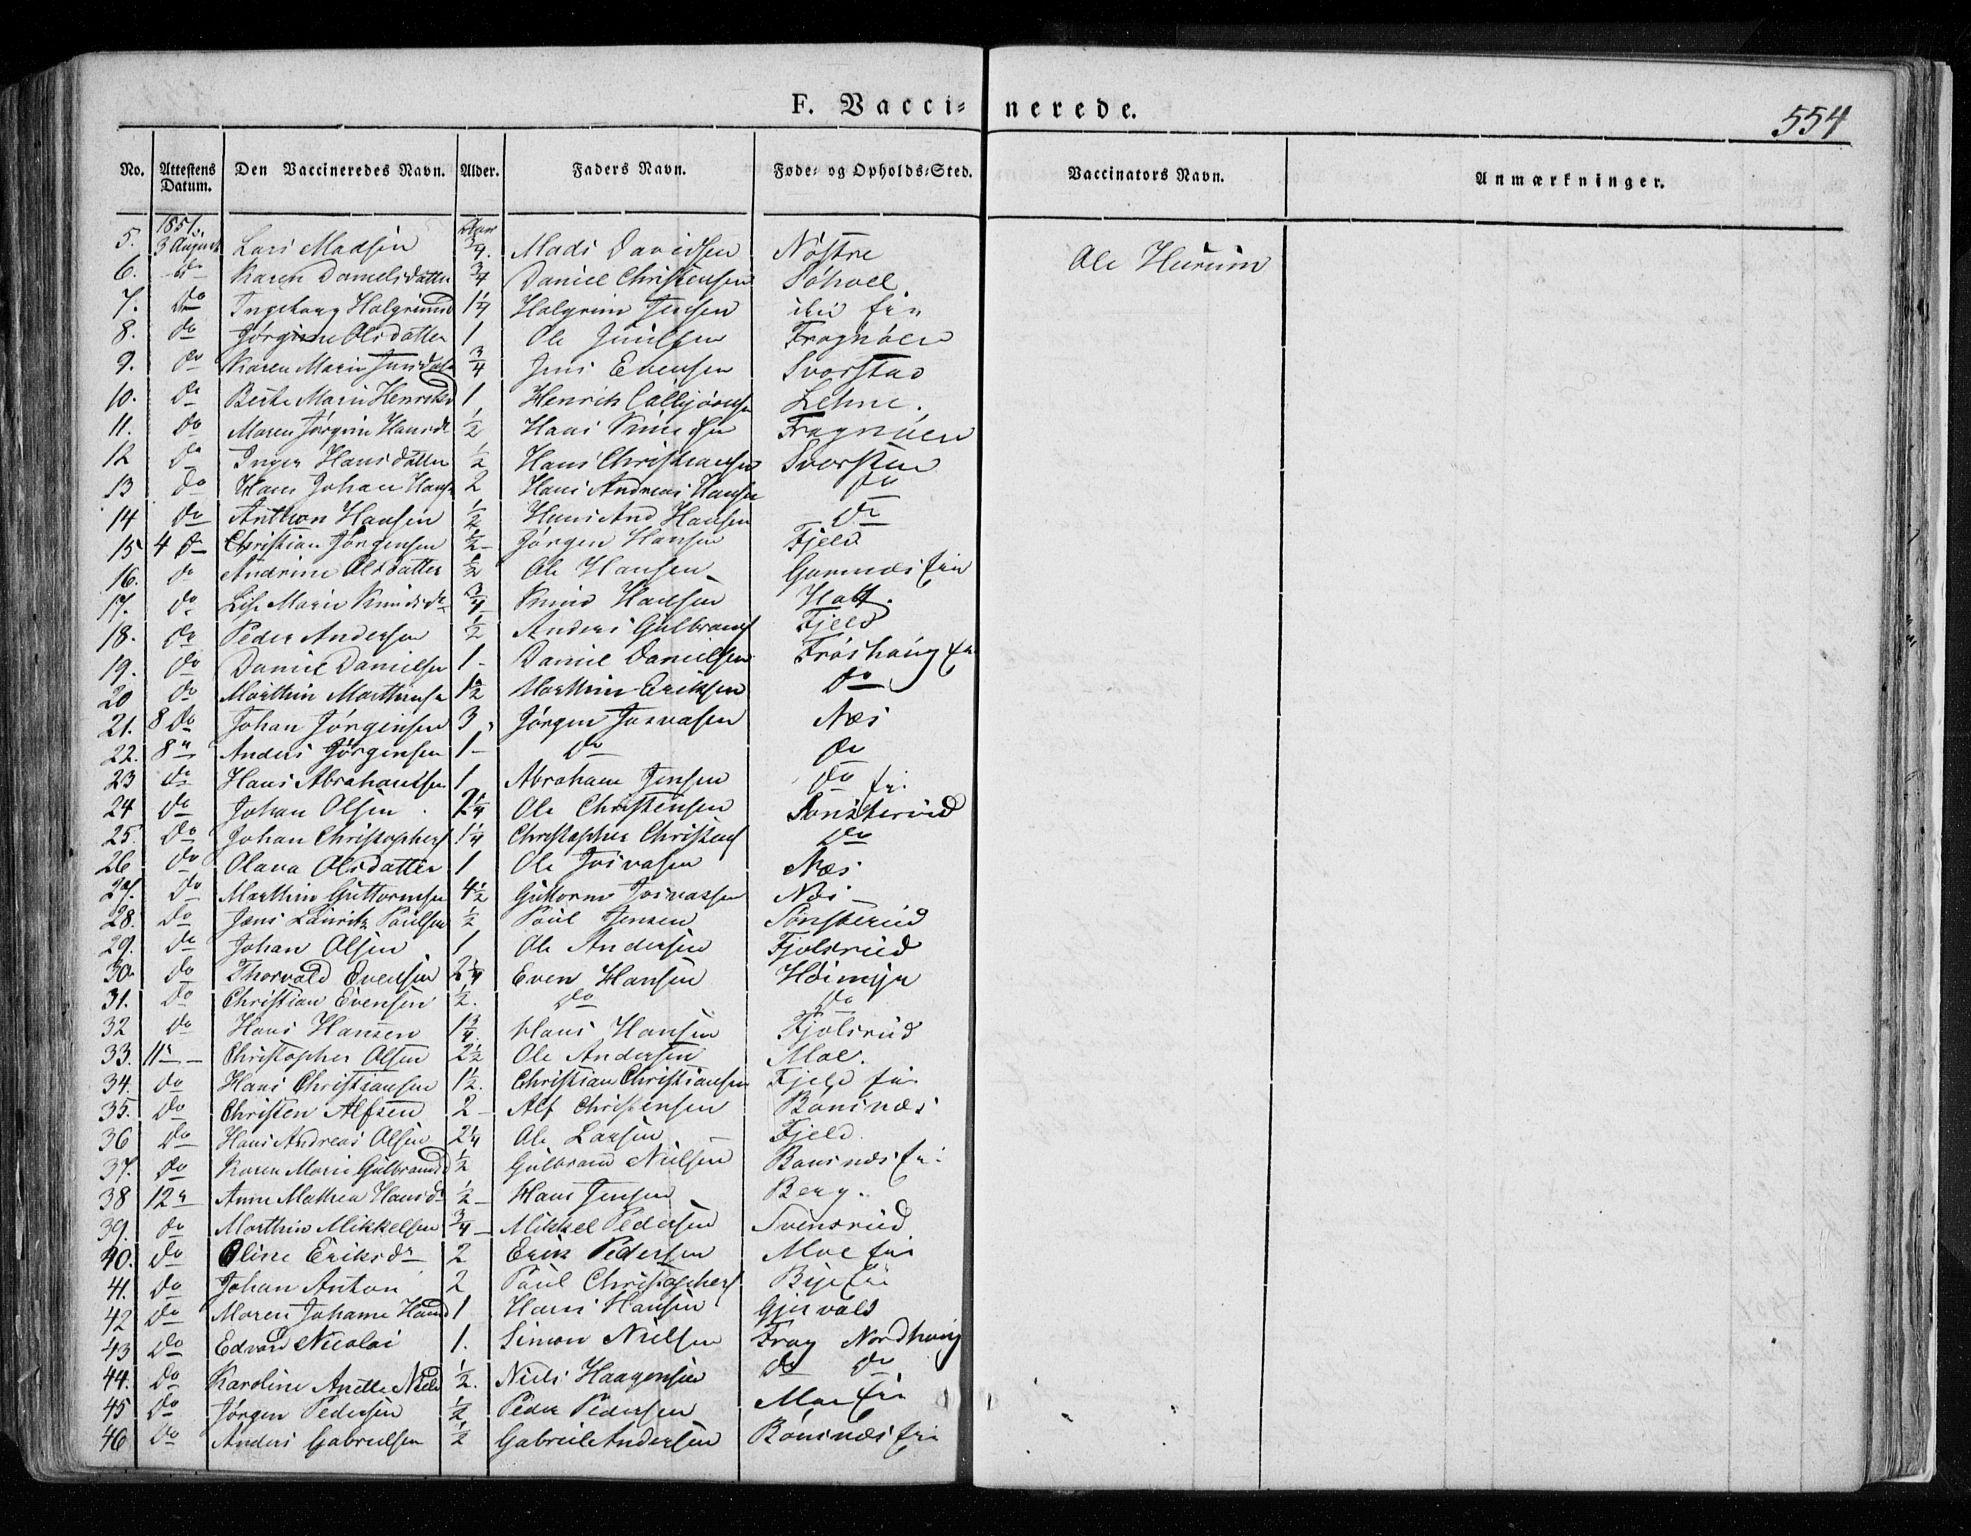 F. Vaccinerede.
554
No. Attestens Datum. Den Vaccineredes Navn. Alder. Faders Navn. Føde- og Opholds-Sted. Vaccinators Navn. Anmærkninger.
1851. Aar
5. 3 August Lars Madsen 3/4. Mads Davidsen Nøstre Ole Hurum
6. do Karen Danielsdatter 3/4 Daniel Christensen
7. do Ingeborg Halgrimsd 1 1/4 Halgrim Jensen
8. do Jørgine Olsdatter 1 Ole Juulsen Frognøen
9. do Karen Marie Jensdatr 3/4 Jens Evensen Svarstad
10. do Berte Marie Henriksd 1 Henrik Lehne.
11. do Maren Jørgine Hansdr 1/2 Hans Knudsen Frognøen
12 do Inger Hansdatter 1/2 Hans Christiansen
13 do Hans Johan Hansen 2 Hans Andreas Hansen do
14 do Anthon Hansen 1/2 Hans And Hansen do
15 4 do Christian Jørgensen 1/2 - Jørgen Hansen Fjeld
16. do Andrine Olsdatter 1/2 Ole Hansen
17. do Lise Marie Knudsdr 3/4 - Knud Hansen
18. do Peder Andersen 1/2 Anders Gulbrands Fjeld
19. do Daniel Danielsen 1 - Daniel Danielsen Frøshaug
20 do Marthin Marthinsen 1 1/2 Marthin Eriksen do
21. 8 do Johan Jørgensen 3 Jørgen Josvasen Næs
22. 8 " Anders Jørgensen 1 - do do
23 do Hans Abrahamsen 1 Abraham Jensen do
24 do Johan Olsen 2 1/4 Ole Christensen Sønsterud
25. do Johan Christophers 1 1/4 Christopher Christens do
26 do Olava Olsdatter 1 Ole Josvasen Næs
27. do Marthin Guttormsen 4 1/2 Guttorm Josvassen Næs
28. do Jens Lauritz Paulsen 1/2 Paul Jensen Sønsterud
29. do Johan Olsen 1 Ole Andersen Fjolsrud
30. do Thorvald Evensen 2 1/4 Even Hansen Høimyr
31. do Christian Evensen 1/2. do do
32 do Hans Hansen 1 3/4. Hans Hansen Fjolsrud
33. 11 " - Christopher Olsen 2 1/2 Ole Andersen Moe.
34. do Hans Christiansen 1 1/2. Christian Christiansen Fjeld
35. do Christen Alfsen 2 - Alf Christensen Bønsnæs
36 do Hans Andreas Olsen 2 1/4 Ole Larsen Fjeld.
37. do Karen Marie Gulbrandsd 1/2 Gulbrand Nielsen Bønsnæs
38 12 " Anne Mathea Hansdr 1/2 - Hans Jensen Berg.
39. do Marthin Mikkelsen 3/4 - Mikkel Pedersen Svensrud
40. do Oline Eriksdr 2 Erik Pedersen Moe
41. do Johan Anton 2 Paul Christophers
42 do Maren Johanne Hansd 1 Hans Hansen Gjesvold
43 do Edvard Nicolai 1. Simon Nielsen
44. do Karoline Anette Nielsd 1/2. Niels Haagensen do do
45 do Jørgen Pedersen 1/2 Peder Pedersen Moe
46 do Anders Gabrielsen 1/2 Gabriel Andersen Bønsnæs